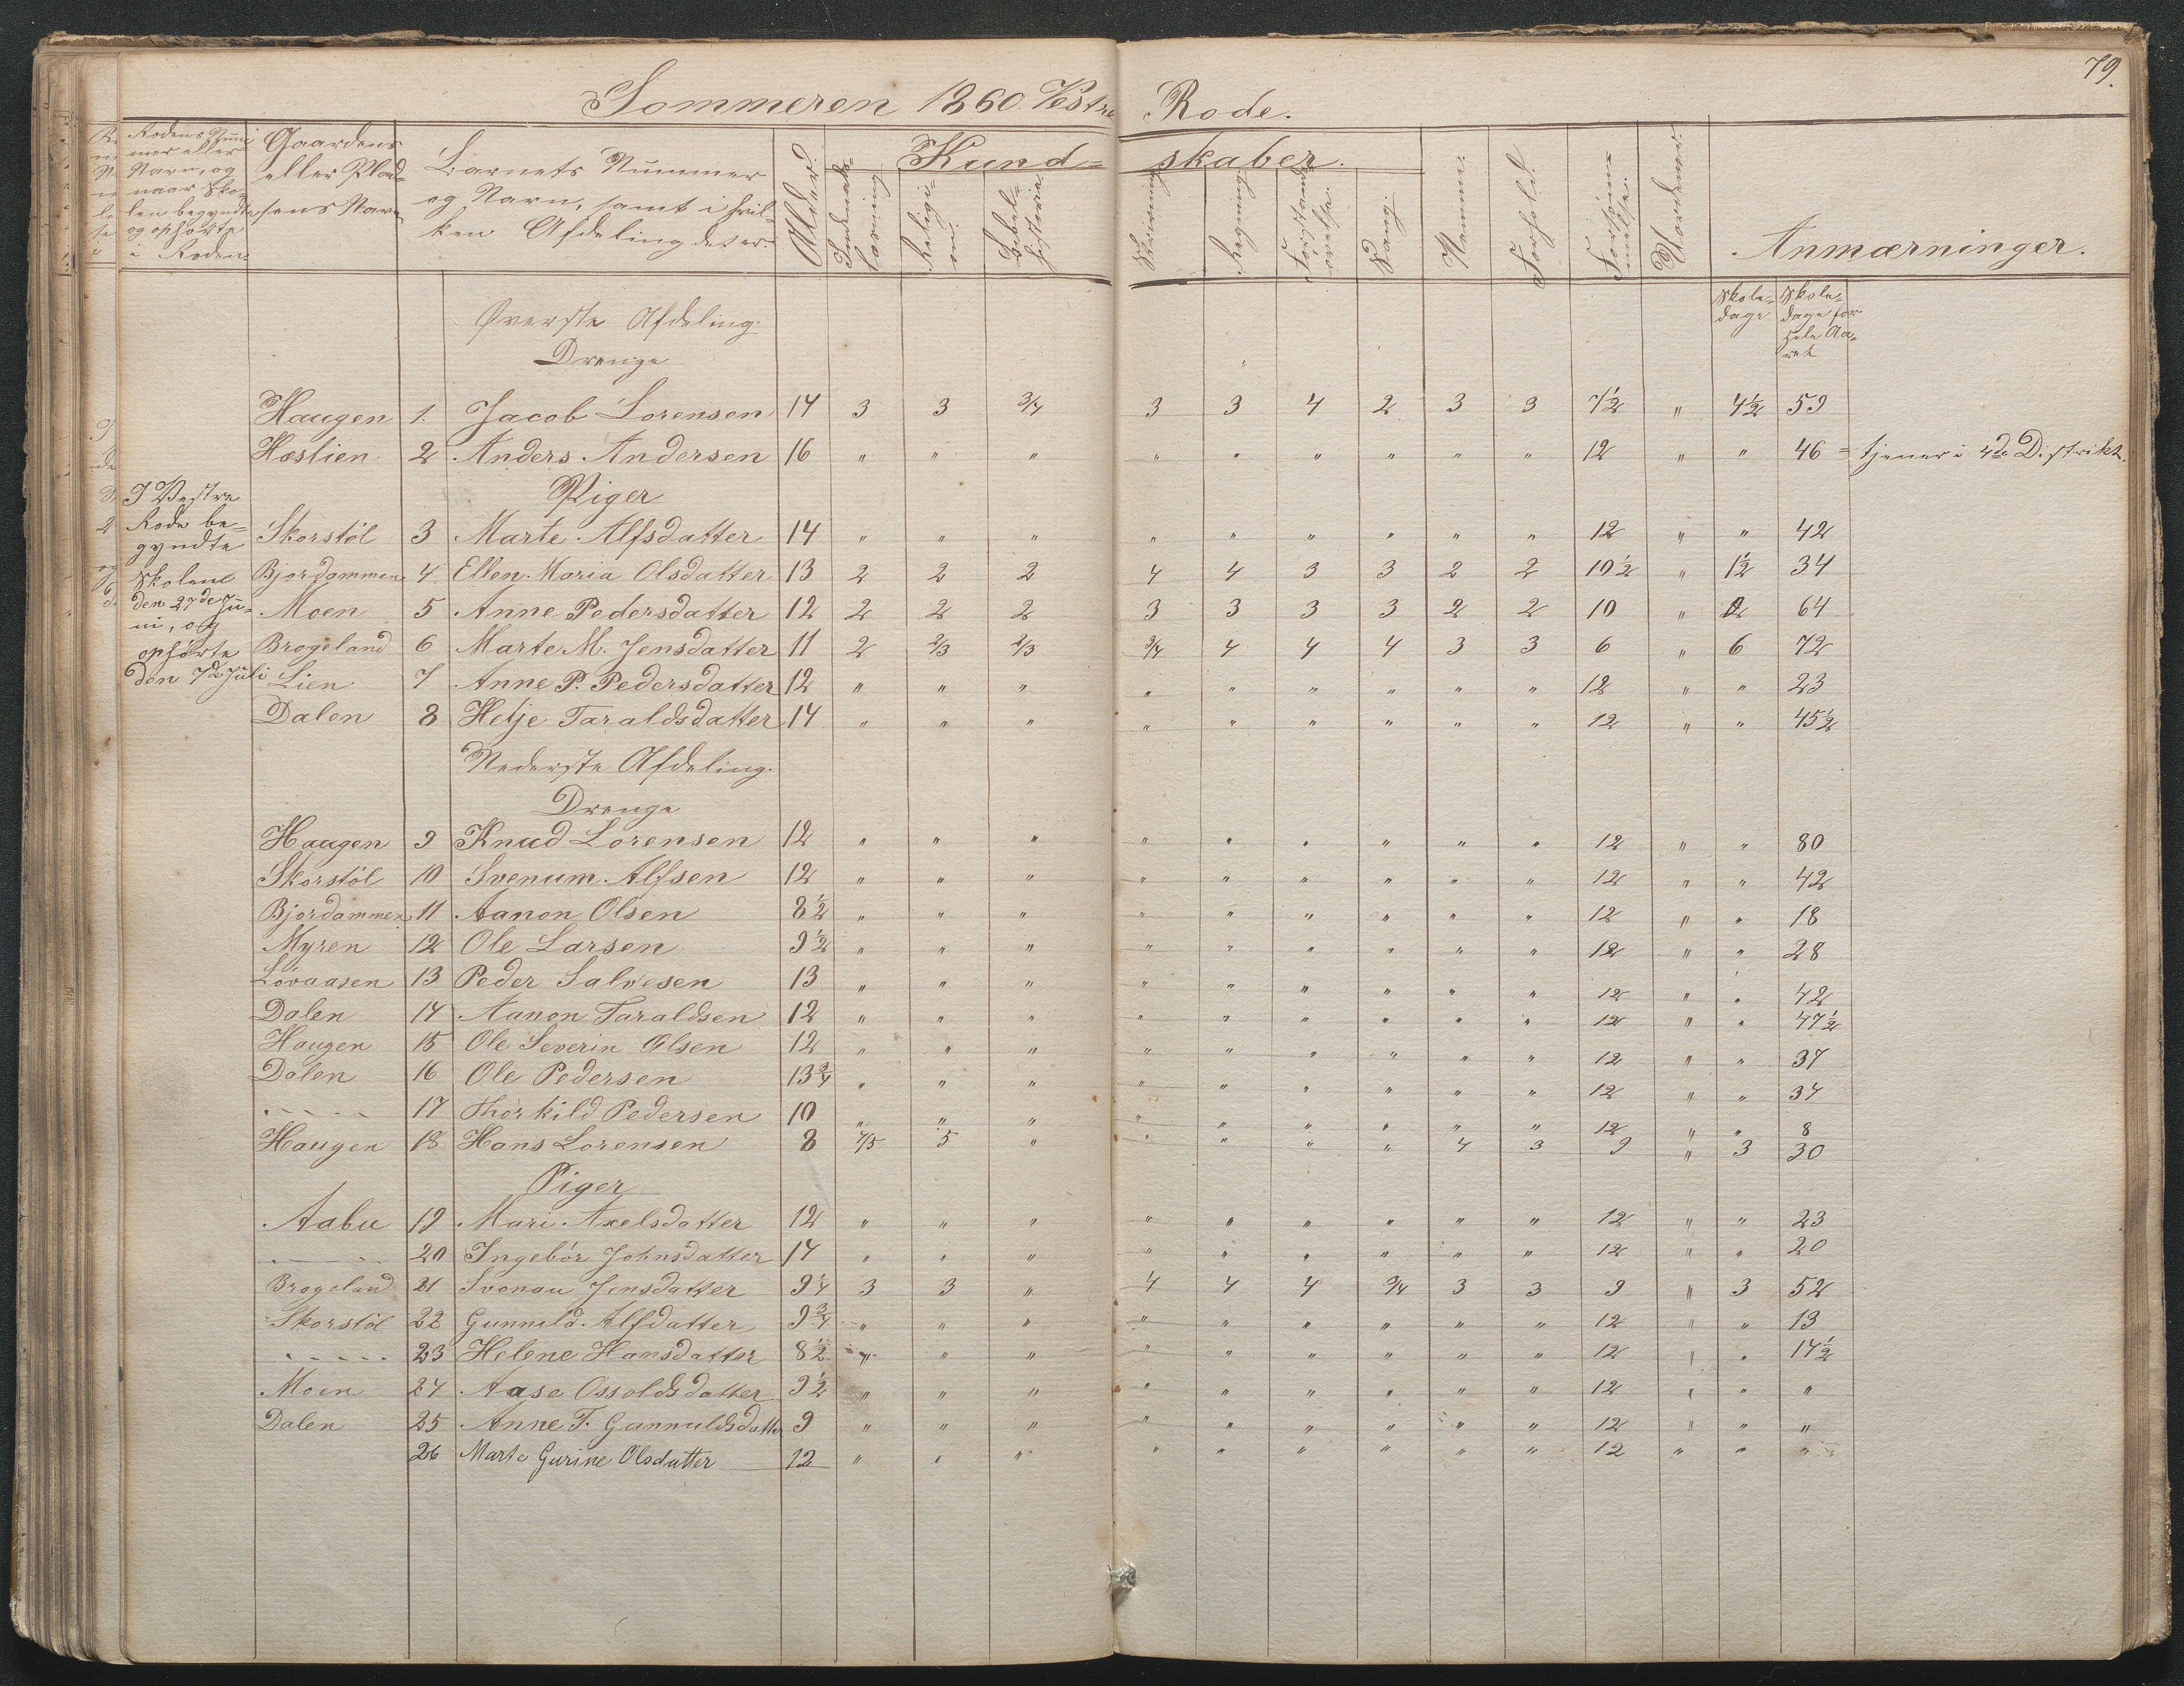 79.
Sommeren 1860. Vestre Rode.
Rodens Num-
mer eller
Navn, og
naar Sko-
len begyndte
og ophørte
i Roden.
Gaardens
eller Plad-
sens Navn
Barnets Nummer
og Navn, samt i hvil-
ken Afdeling det er.
Alder.
Kund-
skaber.
Indenads-
læsning
Religi-
on.
Bibel-
historie
Skrivning
Regning.
Forstands-
øvelse.
Sang.
Nemme.
Forhold.
Forsøm-
melse.
Uordener.
Anmærninger.
Skole-
dage
Skole-
dage for
hele Aa-
ret
Øverste Afdeling.
Drenge
Haugen 1. Jacob Lorensen 14 3 3 3/4 3 3 4 2 3 3 7½ " 4½ 59
Hæslien 2 Anders Andersen 16 " " " " " " " " " 12 " " 46 = tjener i 4de Distrikt.
Piger
I Vestre
Rode be-
gyndte
Skolen
den 27de Ju-
ni, og
ophørte
den 7de Juli
Skorstöl 3 Marte Alfsdatter 14 " " " " " " " " " 12 " " 42
Bjordammen 4 Ellen Maria Olsdatter 13 2 2 2 4 4 3 3 2 2 10½ " 1½ 34
Moen 5 Anne Pedersdatter 12 2 2 2 3 3 3 3 2 2 10 " 2 64
Brogeland 6 Marte M. Jensdatter 11 2 2/3 2/3 3/4 4 4 4 3 3 6 " 6 72
Lien 7 Anne P. Pedersdatter 12 " " " " " " " " " 12 " " 23
Dalen 8 Helje Taraldsdatter 14 " " " " " " " " " 12 " " 45½
Nederste Afdeling.
Drenge
Haugen 9 Knud Lorensen 12 " " " " " " " " " 12 " " 80
Skorstöl 10 Svenum Alfsen 12 " " " " " " " " " 12 " " 42
Bjordammen 11 Aanon Olsen 8½ " " " " " " " " " 12 " " 18
Myren 12 Ole Larsen 9½ " " " " " " " " " 12 " " 28
Lövaasen 13 Peder Salvesen 13 " " " " " " " " " 12 " " 42
Dalen 14 Aanon Taraldsen 12 " " " " " " " " " 12 " " 47½
Haugen 15 Ole Severin Olsen 12 " " " " " " " " " 12 " " 37
Dalen 16 Ole Pedersen 13¾ " " " " " " " " " 12 " " 34
- - - - - 17 Thorkild Pedersen 10 " " " " " " " " " 12 " " 8
Haugen 18 Hans Lorensen 8 4/5 5 " " " " " 4 3 9 " 3 30
Piger
Aabu 19 Mari Axelsdatter 12 " " " " " " " " " 12 " " 23
- - - - 20 Ingebör Johnsdatter 14 " " " " " " " " " 12 " " 20
Brogeland 21 Svonau Jensdatter 9¼ 3 3 " 4 4 4 3/4 3 3 9 " 3 52
Skorstöl 22 Gunnild Alfdatter 9¾ " " " " " " " " " 12 " " 13
- - - - - 23 Helene Hansdatter 8½ " " " " " " " " " 12 " " 14½
Moen 24 Aase Ossoldsdatter 9½ " " " " " " " " " 12 " " "
Dalen 25 Anne T. Gunnuldsdatter 9 " " " " " " " " " 12 " " "
26 Marte Gurine Olsdatter 12 " " " " " " " " " 12 " " "